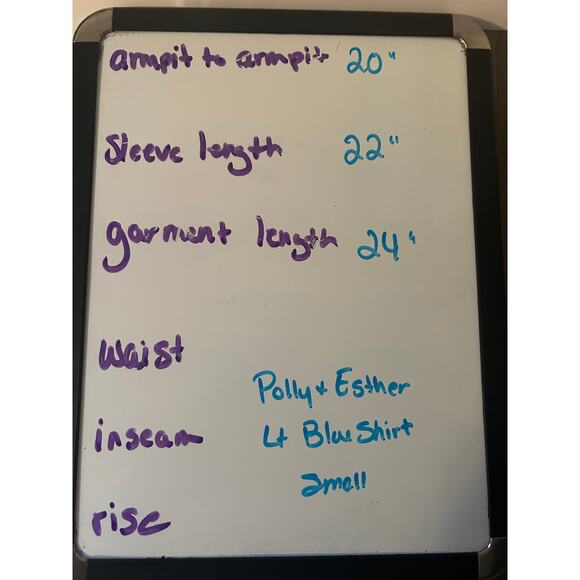 armpit to armpit 20"
Sleeve length 22"
garment length 24"
waist
Polly + Esther
inseam Lt Blue Shirt
Small
rise